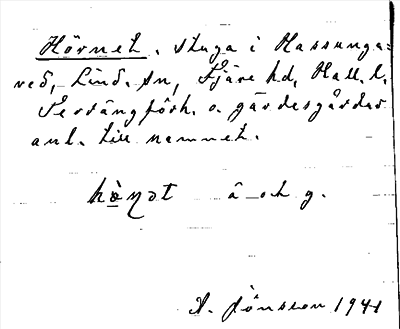 Hörnet. Stuga i Hassunga=
red, Lind. sn, Fjäre hd, Hall. l.
Terrängförh. o. gärdesgårdar
anl. till namnet.
â och g.
A. Jönsson 1941